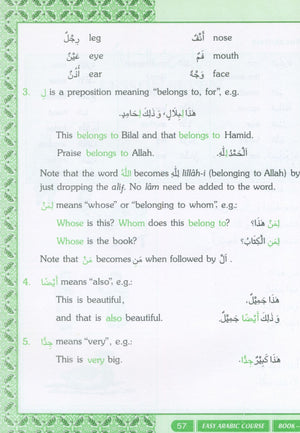 رِجْلٌ leg أَنْفٌ nose
عَيْنٌ eye فَمٌ mouth
أُذُنٌ ear وَجْهٌ face
3. لِ is a preposition meaning "belongs to, for", e.g.
هَذَا لِبِلَالٍ، وَ ذَلِكَ لِحَامِدٍ.
This belongs to Bilal and that belongs to Hamid.
Praise belongs to Allah. الْحَمْدُ لِلَّهِ.
Note that the word اللَّهُ becomes لِلَّهِ lillâh-i (belonging to Allah) by
just dropping the alif. No lâm need be added to the word.
لِمَنْ means "whose" or "belonging to whom", e.g.:
Whose is this? Whom does this belong to? لِمَنْ هَذَا؟
Whose is the book? لِمَنِ الْكِتَابُ؟
Note that مَنْ becomes مَنِ when followed by الْ.
4. أَيْضًا means "also", e.g.:
This is beautiful, هَذَا جَمِيْلٌ،
and that is also beautiful. وَ ذَلِكَ أَيْضًا جَمِيْلٌ.
5. جِدًّا means "very", e.g.:
This is very big. هَذَا كَبِيْرٌ جِدًّا.
57 EASY ARABIC COURSE BOOK-